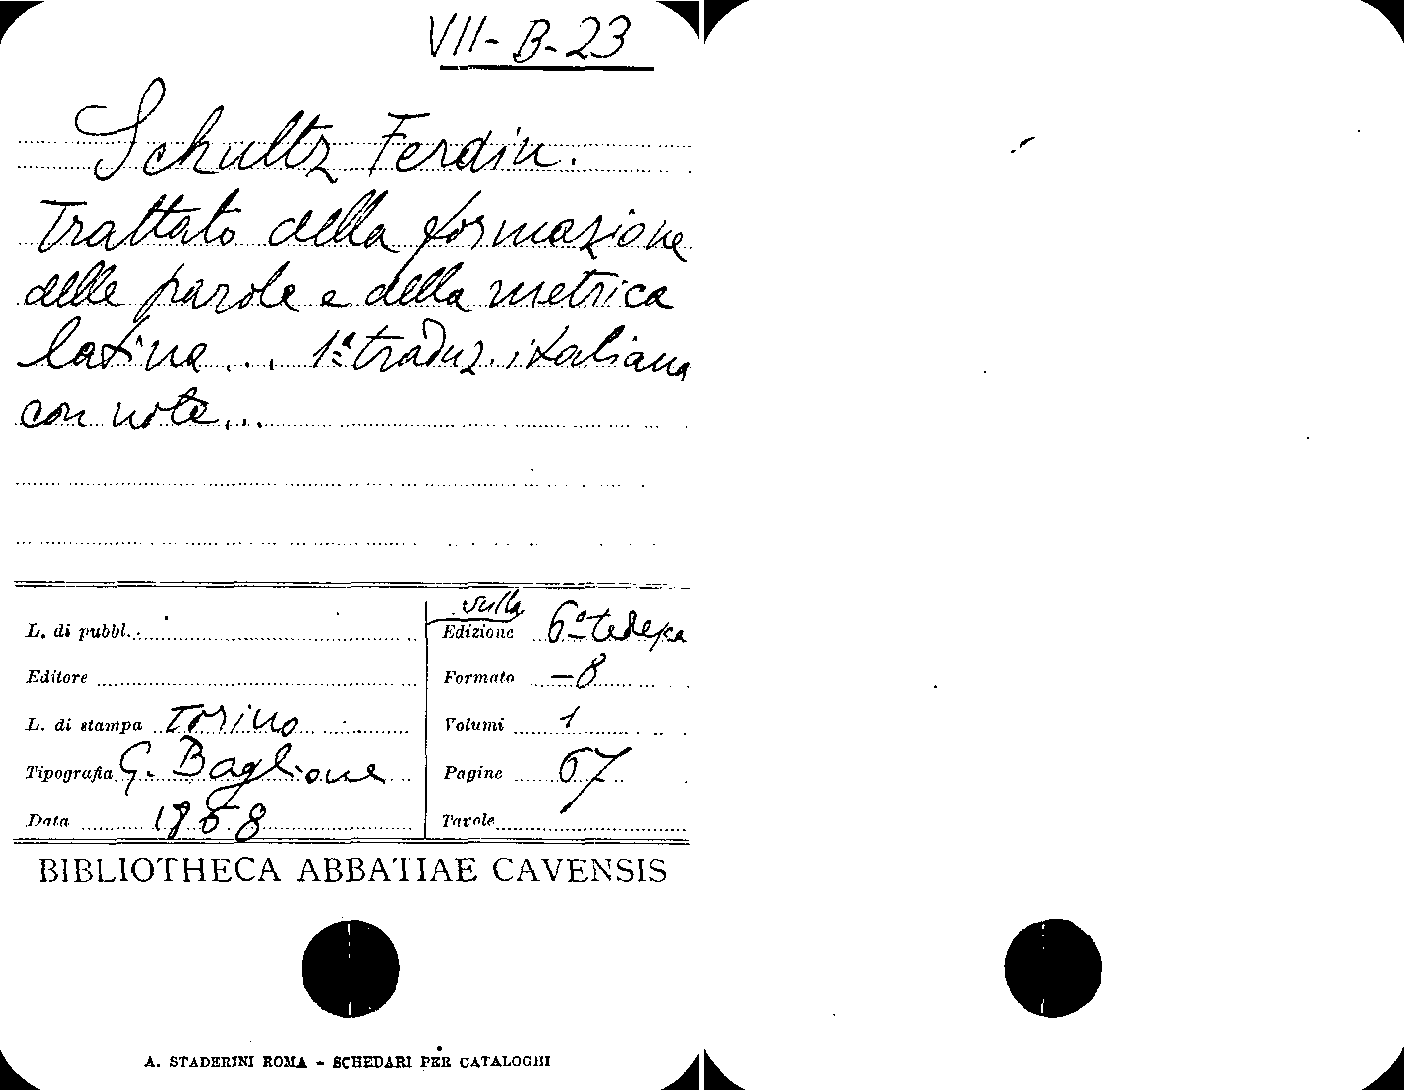 VII-B-23
Schultz Ferdin.
Trattato della formazione
delle parole e della metrica
latina... 1ª traduz. italiana
con note...
L. di pubbl.
Editore
L. di stampa Torino
Tipografia G. Baglione
Data 1868
sulla
Edizione 6ª tedesca
Formato -8
Volumi 1
Pagine 67
Tavole
BIBLIOTHECA ABBATIAE CAVENSIS
A. STADERINI ROMA - SCHEDARI PER CATALOGHI